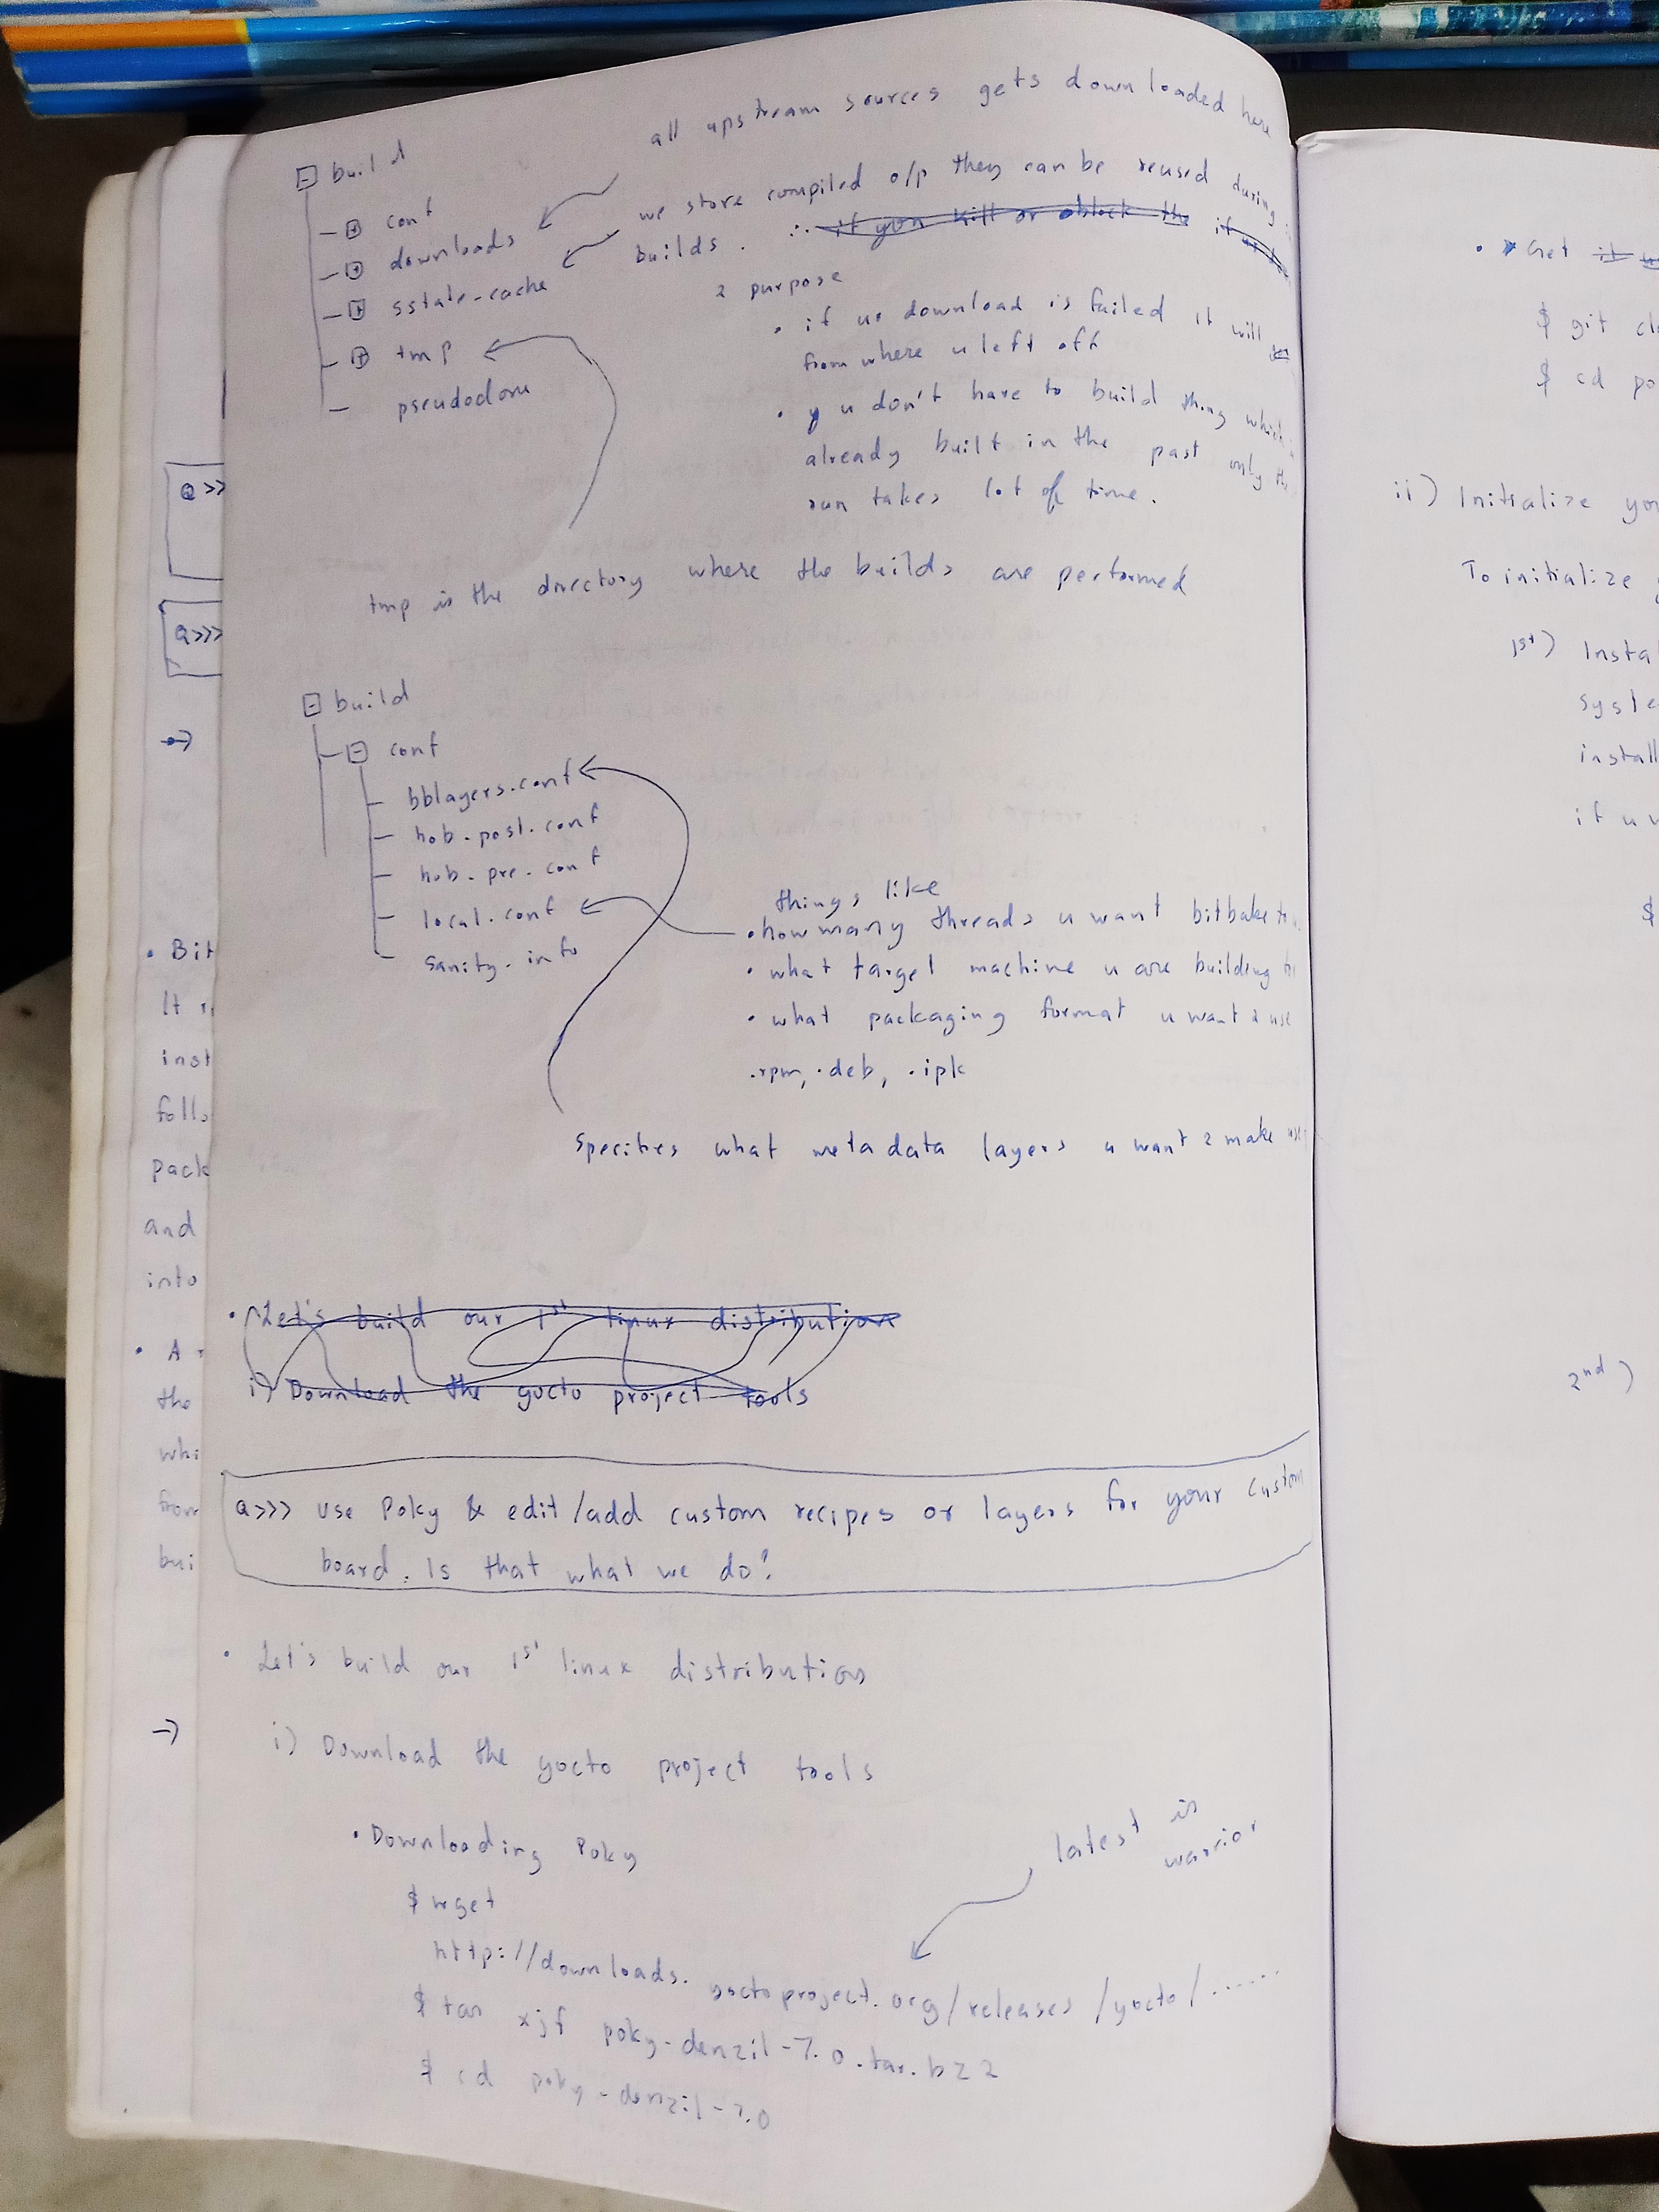 all upstream sources gets downloaded here
build
conf
downloads
sstate-cache
tmp
pseudodone
we store compiled o/p they can be reused during
builds. ∴ if you kill or block the
2 purpose
• if ur download is failed it will
from where u left off
• y u don't have to build thing which
already built in the past only
run takes lot of time.
tmp is the directory where the builds are performed
build
conf
bblayers.conf
hob-post.conf
hob-pre-conf
local.conf
sanity-info
things like
• how many threads u want bitbake to
• what target machine u are building
• what packaging format u want 2 use
.rpm, .deb, .ipk
specifies what meta data layers u want 2 make use
• Let's build our 1st linux distribution
i) Download the yocto project tools
Q>>> Use Poky & edit/add custom recipes or layers for your custom
board. Is that what we do?
• Let's build our 1st linux distribution
i) Download the yocto project tools
• Downloading Poky
latest is
warrior
$ wget
http://downloads.yoctoproject.org/releases/yocto/......
$ tar xjf poky-denzil-7.0.tar.bz2
$ cd poky-denzil-7.0
Q>>
Q>>>
→
• Bit
It
inst
follo
pack
and
into
• A
the
whi
from
bui
→
• Get it
$ git clo
$ cd po
ii) Initialize you
To initialize
1st) Instal
syste
install
if u
$
2nd)